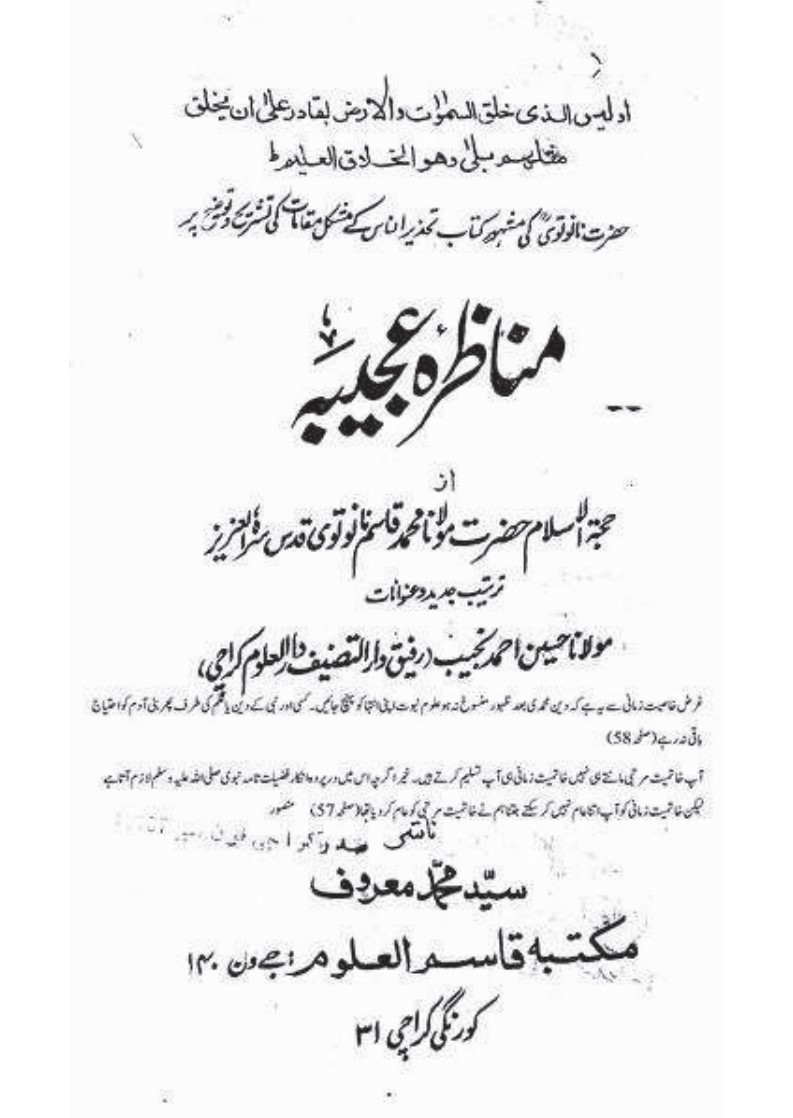 اولیس الذی خلق السمٰوٰت والارض بقادر علیٰ ان یخلق
مثلهم بلیٰ وهو الخلاق العلیم ط
حضرت نانوتویؒ کی مشہور کتاب تحذیر الناس کے مشکل مقامات کی تشریح و توضیح پر
مناظرۂ عجیبہ
از
حجۃ الاسلام حضرت مولانا محمد قاسم نانوتوی قدس سرہٗ العزیز
ترتیب جدید و عنوانات
مولانا حسین احمد نجیب (رفیق دار التصنیف دار العلوم کراچی)
غرض خاتمیت زمانی سے یہ ہے کہ دین محمدی بعد ظہور منسوخ نہ ہو علوم نبوت اپنی انتہا کو پہنچ جائیں۔ کسی اور نبی کے دین یا علم کی طرف پھر بنی آدم کو احتیاج
باقی نہ رہے (صفحہ 58)
آپ خاتمیت مرتبی مانتے ہی نہیں خاتمیت زمانی ہی آپ تسلیم کرتے ہیں۔ خیر اگرچہ اس میں در پردہ انکار فضیلت تامہ نبوی صلی اللہ علیہ وسلم لازم آتا ہے
لیکن خاتمیت زمانی کو آپ اتنا عام نہیں کر سکتے جتنا ہم نے خاتمیت مرتبی کو عام کر دیا تھا (صفحہ 57) منصور
ناشر
سیّد محمّد معروف
مکتبہ قاسم العلوم : جے ون ۱۴۰
کورنگی کراچی ۳۱